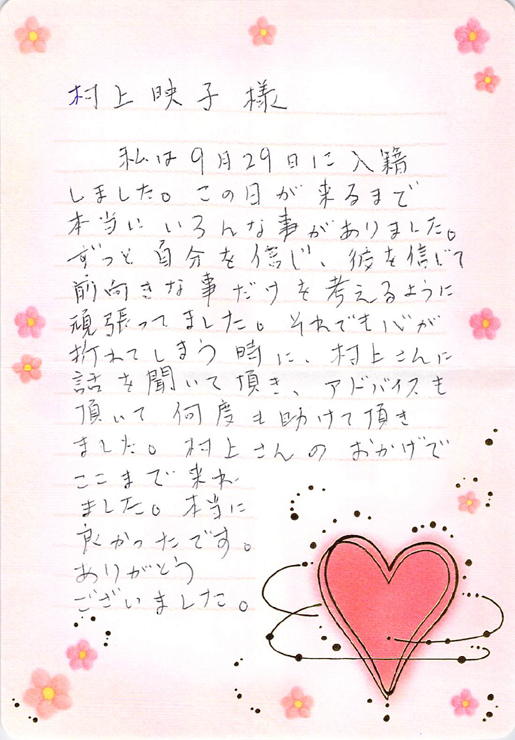 村上映子様
私は9月29日に入籍
しました。この日が来るまで
本当にいろんな事がありました。
ずっと自分を信じ、彼を信じて
前向きな事だけを考えるように
頑張ってました。それでも心が
折れてしまう時に、村上さんに
話を聞いて頂き、アドバイスも
頂いて何度も助けて頂き
ました。村上さんのおかげで
ここまで来れ
ました。本当に
良かったです。
ありがとう
ございました。